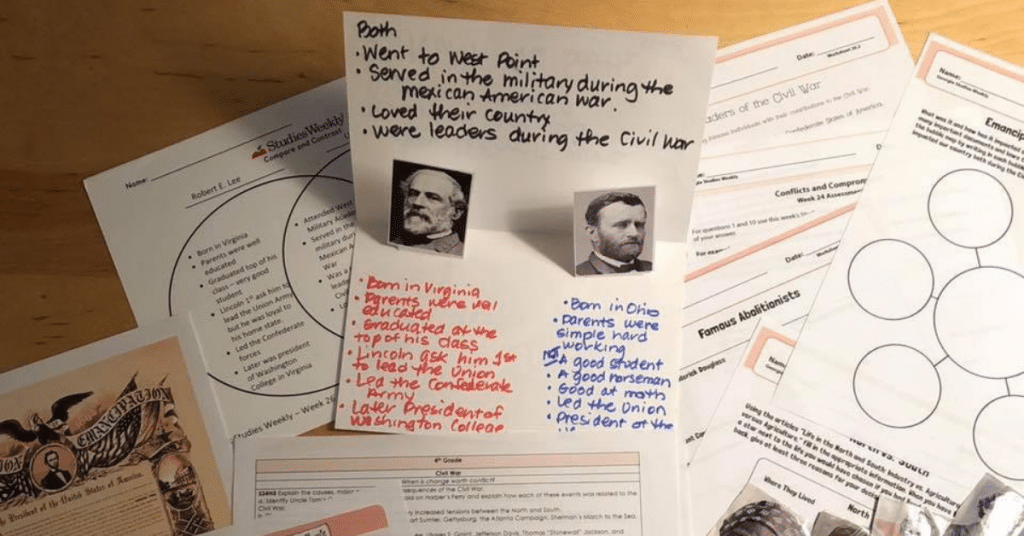 Both
• Went to West Point
• Served in the military during the
mexican American war.
• Loved their country
• were leaders during the Civil War
• Born in Virginia
• Parents were
educated
• Graduated at the
top of his class
• Lincoln ask him 1st
to lead the Union
• Led the Confederate
Army
• Later President of
Washington College
• Born in Ohio
• Parents were
simple hard
working
• NOT A good student
• A good horseman
• Good at math
• Led the Union
• President of the
Name:
StudiesWeekly
Compare and Contrast
Robert E. Lee
• Born in Virginia
• Parents were well
educated
• Graduated top of his
class – very good
student
• Lincoln 1st ask him to
lead the Union Army
but he was loyal to
his home state.
• Led the Confederate
forces
• Later was president
of Washington
College in Virginia
• Attended West
Military Acade
• Served in the
military dur
Mexican A
War
• Was a
leade
Civi
Studies Weekly – Week 26
EMANCIPATION
the President of the United States of America.
4th Grade
Civil War
When is change worth conflict?
SS4H5 Explain the causes, major
a. Identify Uncle Tom's
Civil War.
sequences of the Civil War.
on Harper's Ferry and explain how each of these events was related to the
increased tensions between the North and South.
rt Sumter, Gettysburg, the Atlanta Campaign, Sherman's March to the Sea,
Grant, Jefferson Davis, Thomas "Stonewall" Jackson, and
Date:
Worksheet
aders of the Civil War
individuals with their contributions to the Civil War.
Confederate States of America.
Studies Weekly
Conflicts and Comprom
Week 24 Assessme
For questions 1 and 10 use this week's
of your answer.
For exam
Date:
Famous Abolitionists
derick Douglass
Name:
Georgia Studies Weekly
Emancip
North vs. South
Using the articles "Life in the North and South: Industry vs. Agricultu
Agriculture," fill in the appropriate information. When you have
a star next to the life you would have chosen if you had
back, give at least three reasons for your
Where They Lived
North